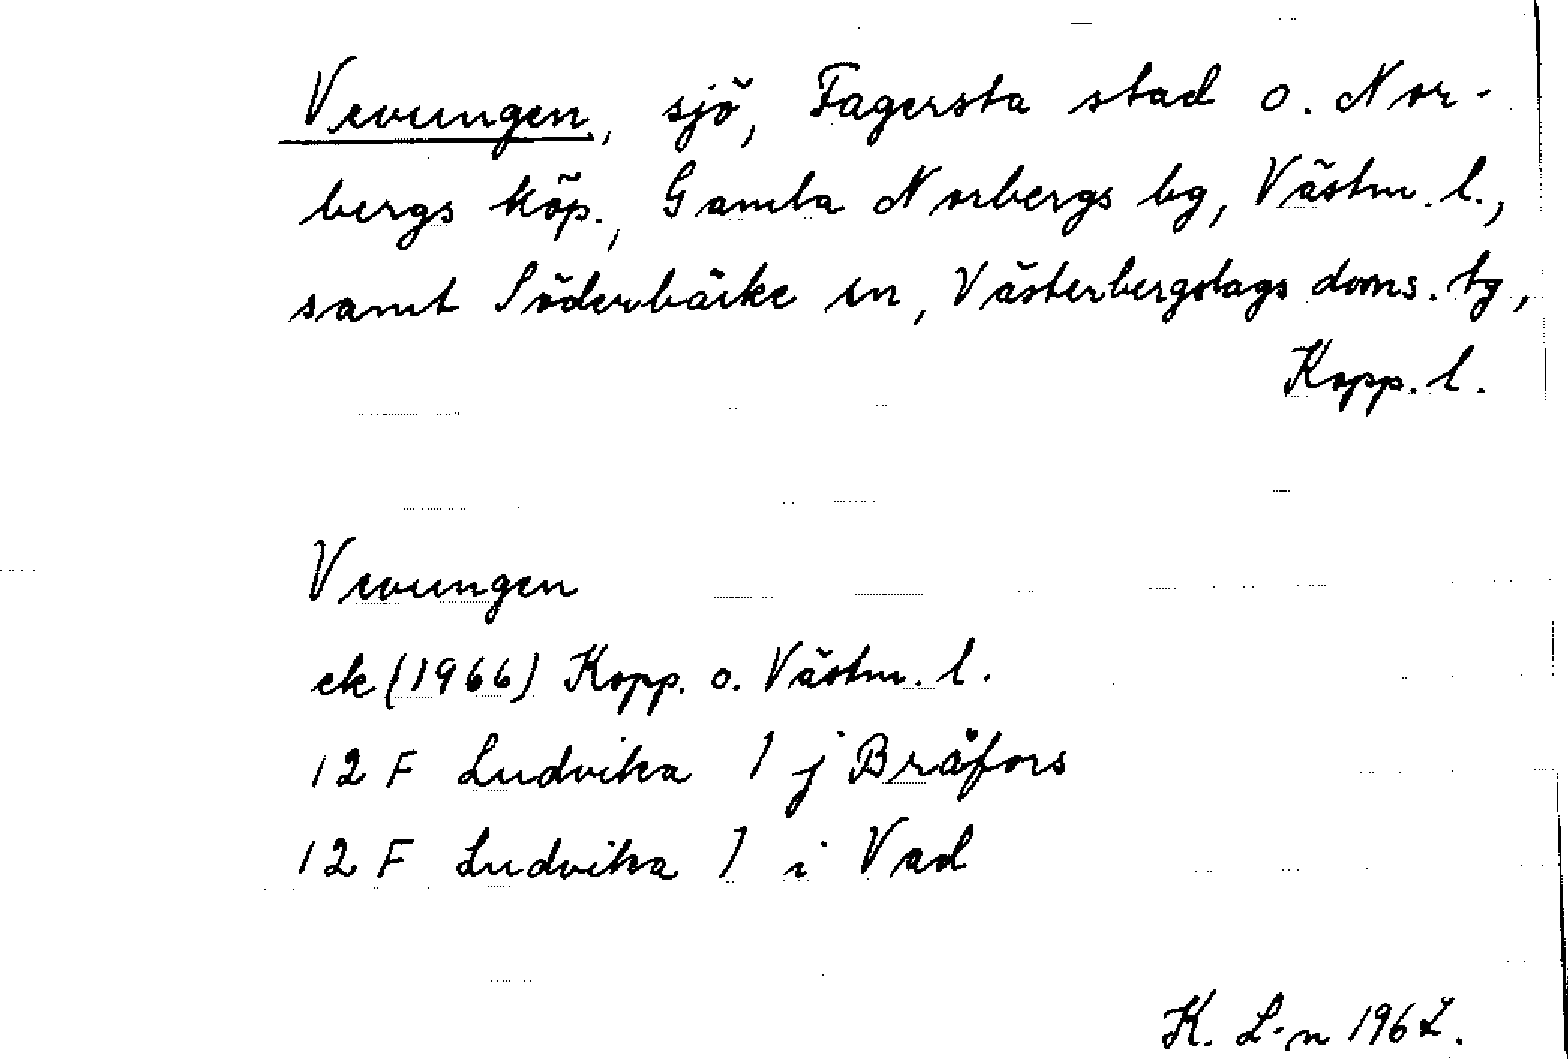 Vevungen, sjö, Fagersta stad o. Nor-
bergs köp., Gamla Norbergs bg, Västm. l.,
samt Söderbärke sn, Västerbergslags doms. tg,
Kopp. l.
Vevungen
ek (1966) Kopp. o. Västm. l.
12 F Ludvika 1 j Bråfors
12 F Ludvika 1 i Vad
K. L-n 1967.